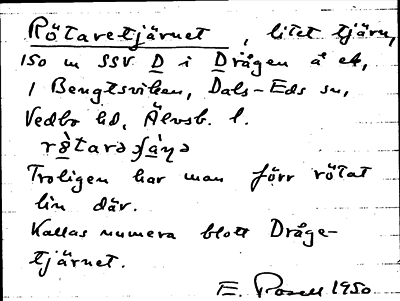 Rötaretjärnet, litet tjärn,
150 m SSV D i Drågen å ek,
1 Bengtsviken, Dals-Eds sn,
Vedbo hd, Älvsb. l.
Troligen har man förr rötat
lin där.
Kallas numera blott Dråge-
tjärnet.
E. 1950